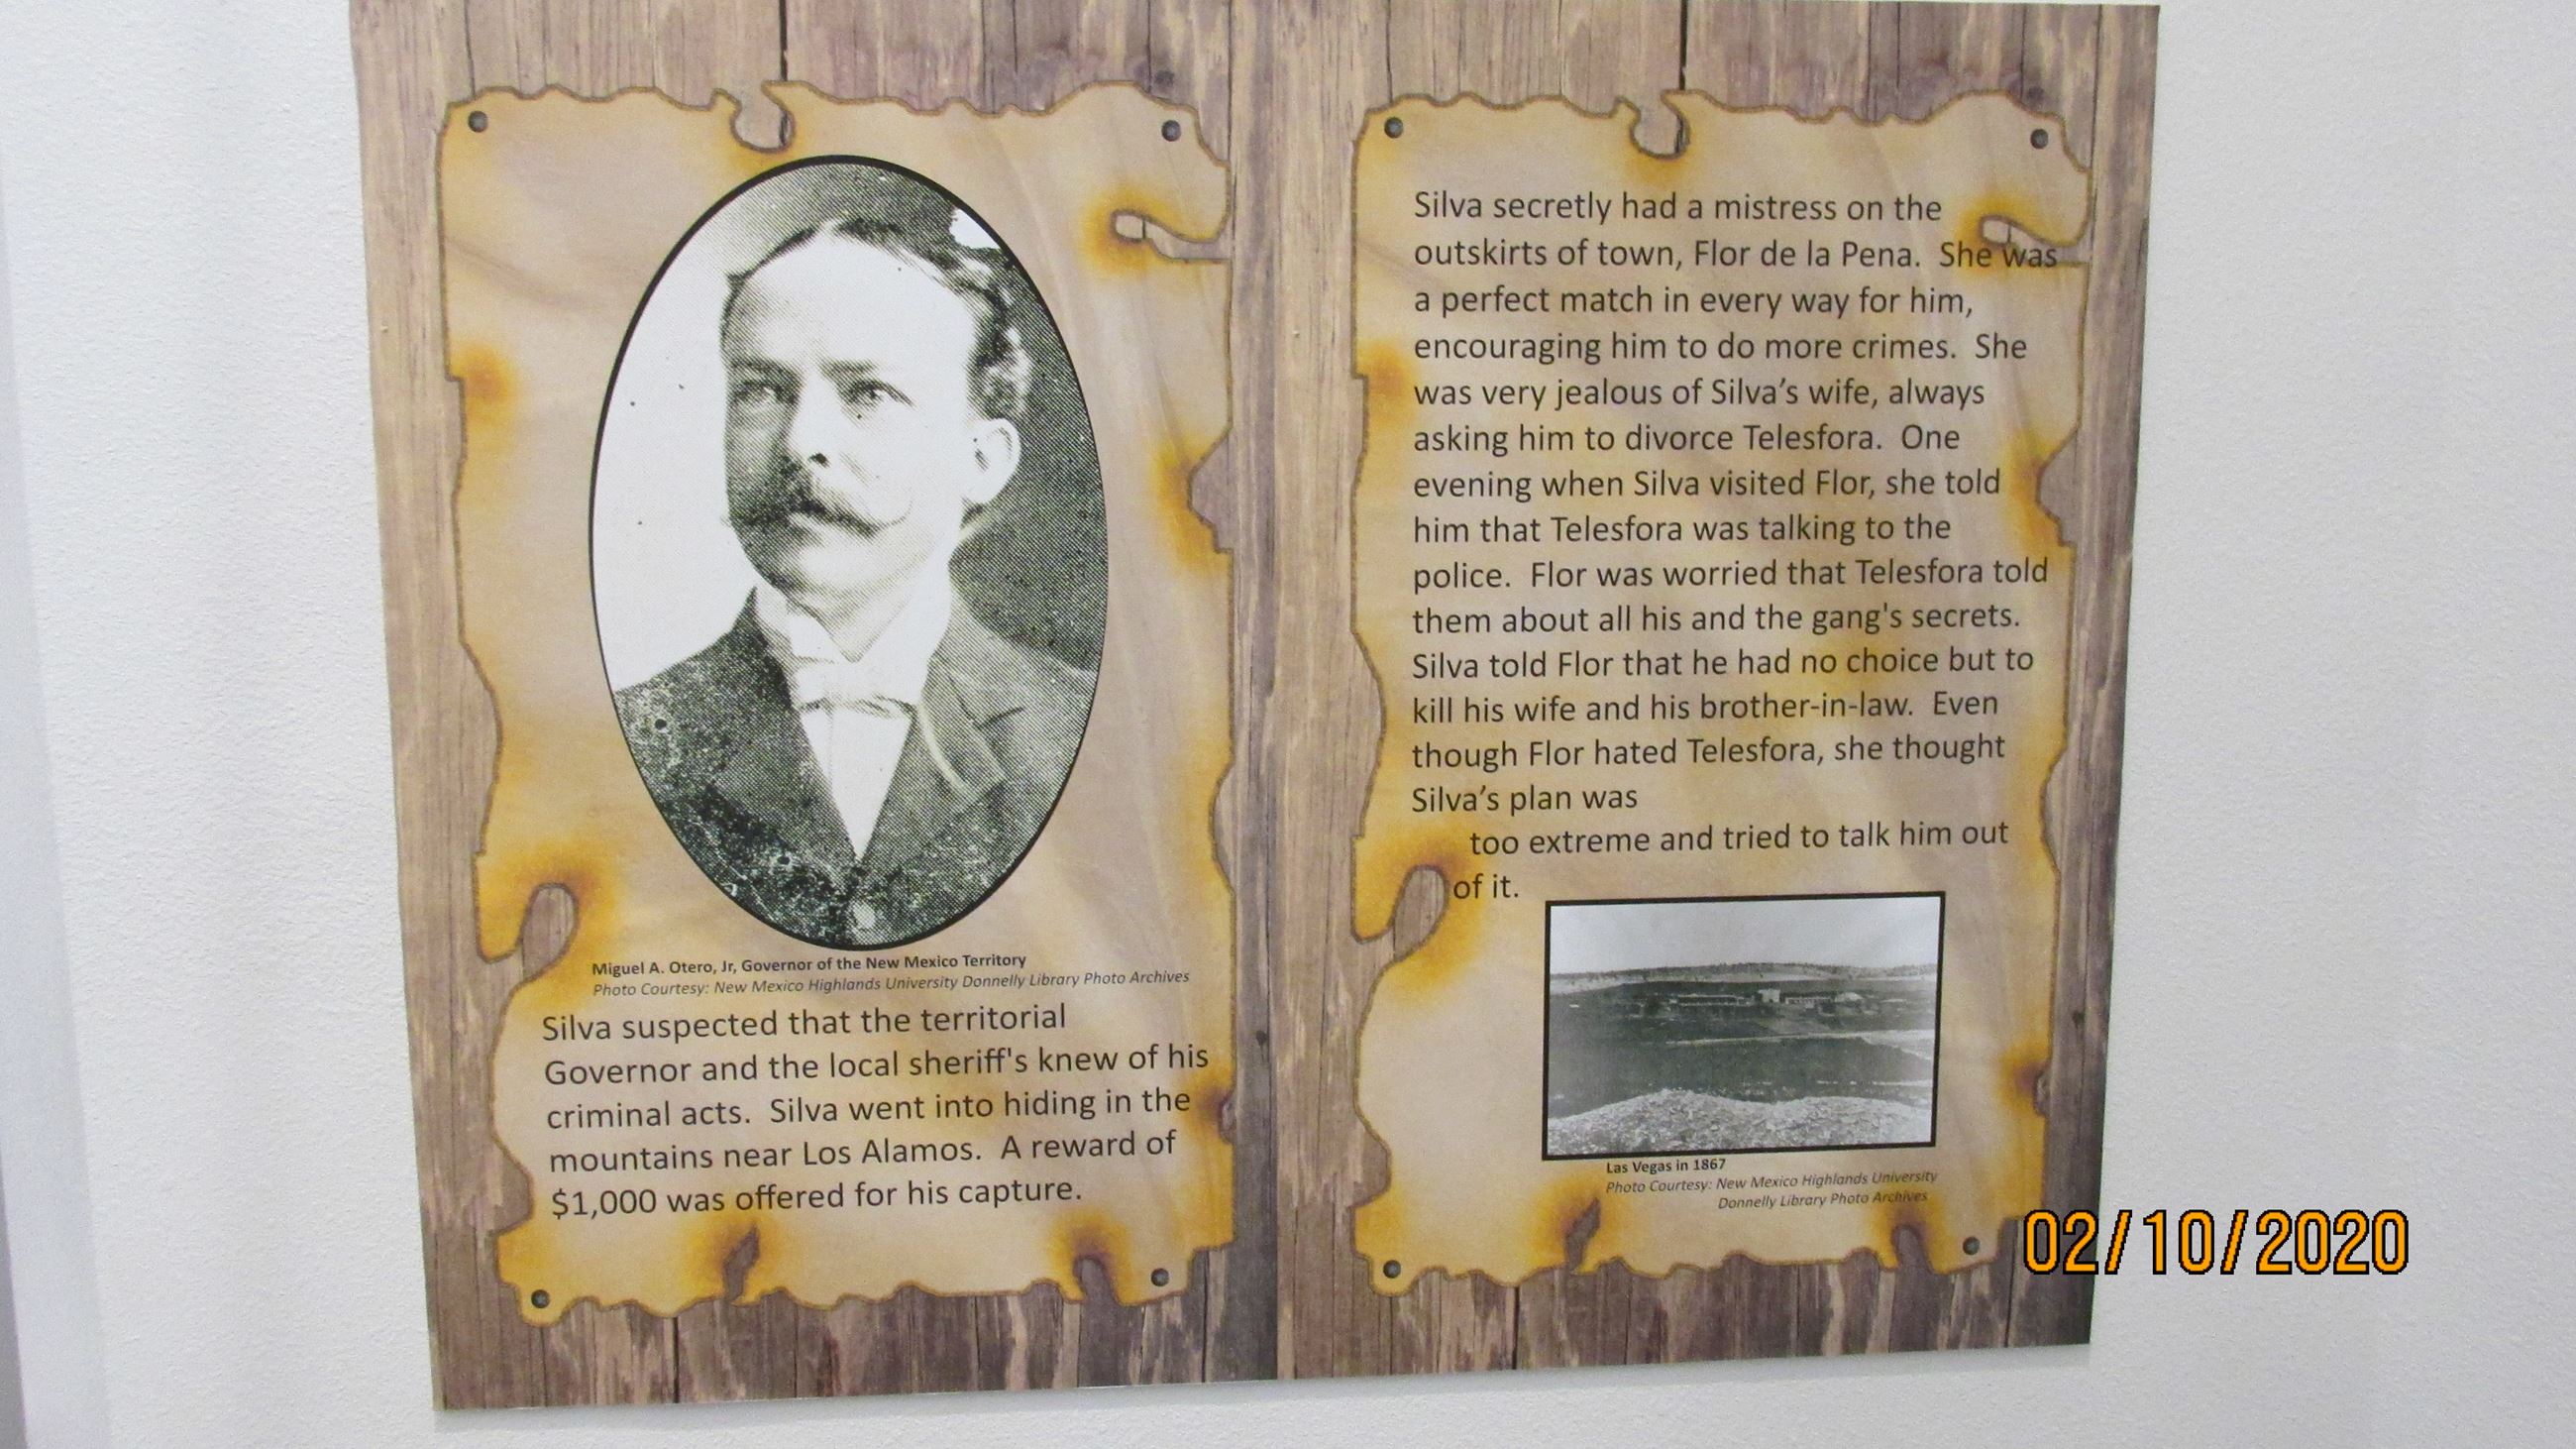 Miguel A. Otero, Jr, Governor of the New Mexico Territory
Photo Courtesy: New Mexico Highlands University Donnelly Library Photo Archives
Silva suspected that the territorial
Governor and the local sheriff's knew of his
criminal acts.  Silva went into hiding in the
mountains near Los Alamos.  A reward of
$1,000 was offered for his capture.
Silva secretly had a mistress on the
outskirts of town, Flor de la Pena.  She was
a perfect match in every way for him,
encouraging him to do more crimes.  She
was very jealous of Silva’s wife, always
asking him to divorce Telesfora.  One
evening when Silva visited Flor, she told
him that Telesfora was talking to the
police.  Flor was worried that Telesfora told
them about all his and the gang's secrets.
Silva told Flor that he had no choice but to
kill his wife and his brother-in-law.  Even
though Flor hated Telesfora, she thought
Silva’s plan was
too extreme and tried to talk him out
of it.
Las Vegas in 1867
Photo Courtesy: New Mexico Highlands University
Donnelly Library Photo Archives
02/10/2020